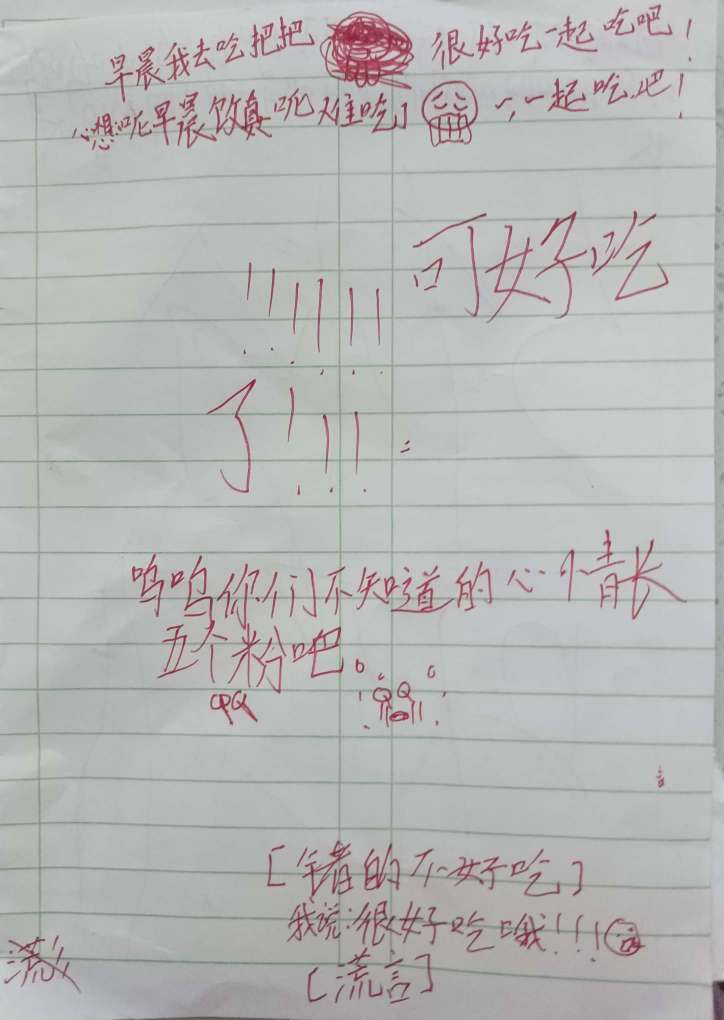 早晨我去吃把把 很好吃一起吃吧！
心想:呃早晨饭真呃难吃」 一起吃吧！
！！！！！！可好吃
了！！！！
呜呜你们不知道的心情长
五个粉吧
QQ
QQ
[ 的不好吃]
我说:很好吃哦！！！
谎
[谎言]